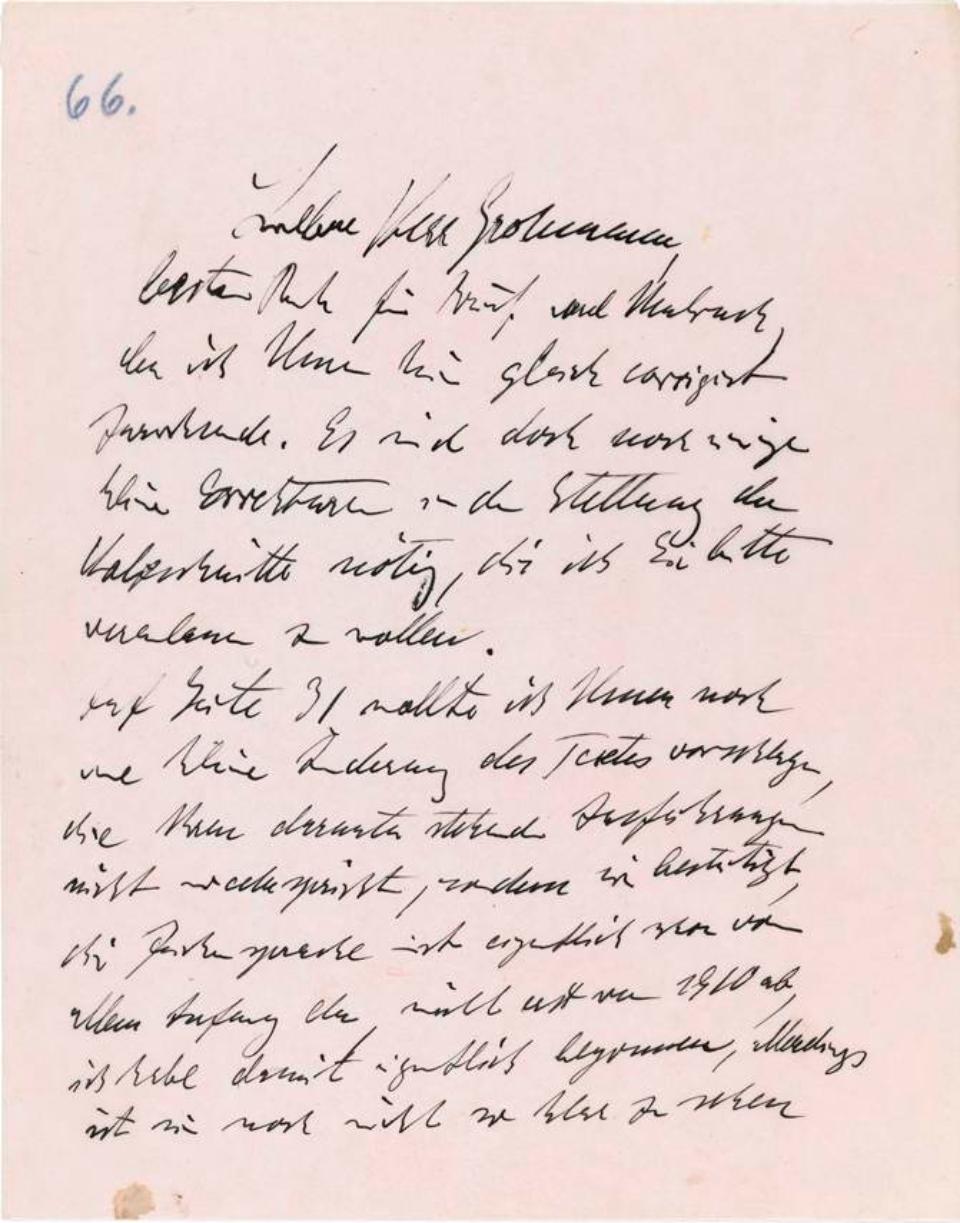 66.
Lieber Herr Grohmann,
besten Dank für Brief und Umbruch,
den ich Ihnen hier gleich corrigiert
zurücksende. Es sind doch noch einige
kleine Correkturen in der Stellung der
Holzschnitte nötig, die ich Sie bitte
veranlassen zu wollen.
Auf Seite 31 wollte ich Ihnen noch
eine kleine Änderung des Textes vorschlagen,
die Ihren darunter stehenden Ausführungen
nicht widerspricht, sondern sie bestätigt,
die Zeichensprache ist eigentlich schon von
allem Anfang da, nicht erst von 1910 ab,
ich habe damit eigentlich begonnen, allerdings
ist sie noch nicht so klar zu sehen